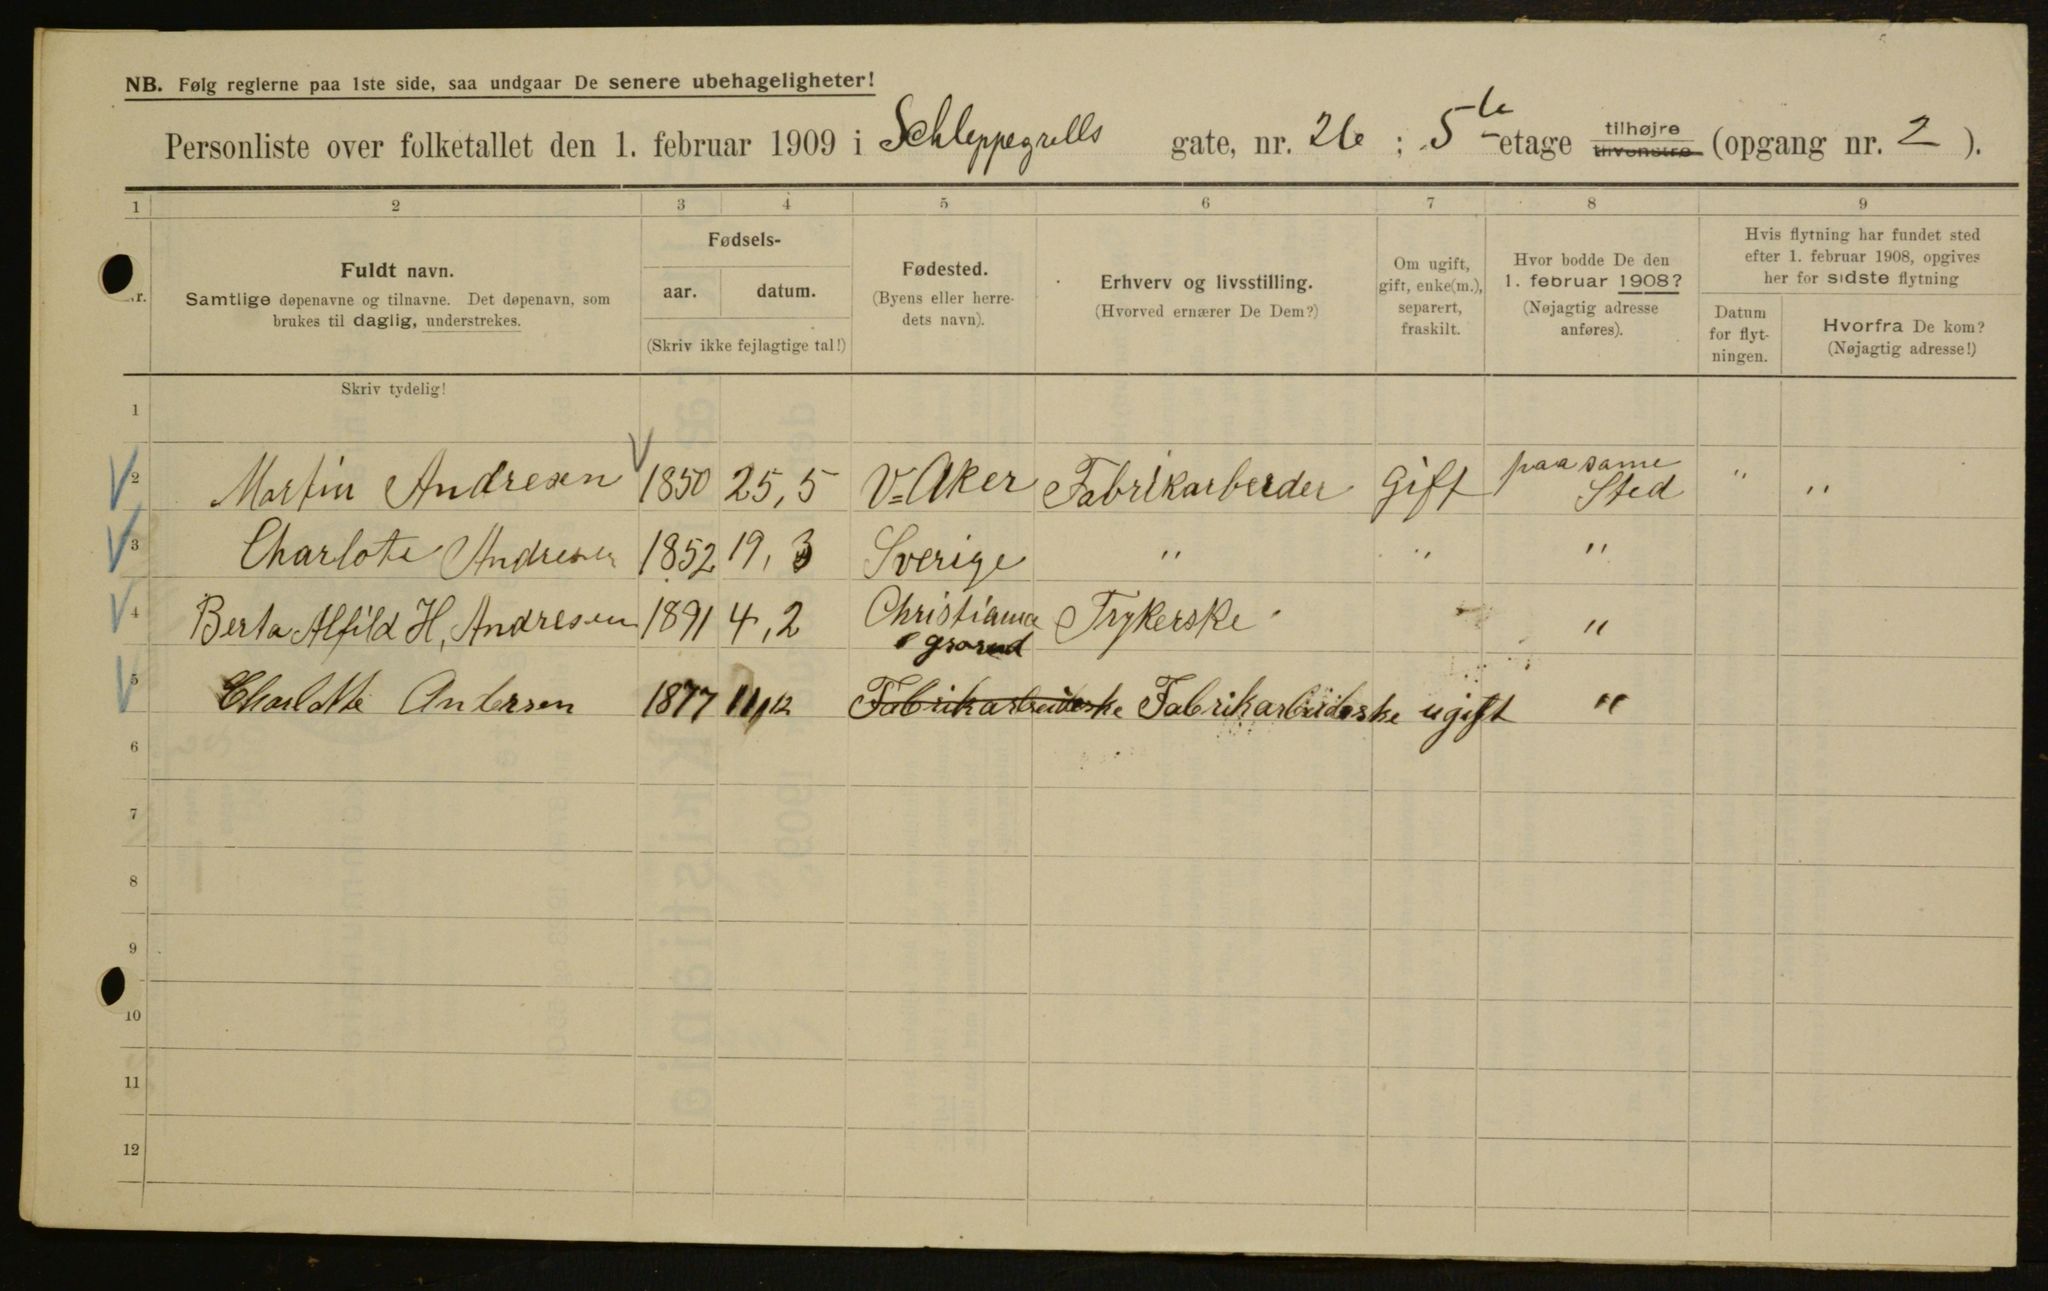 NB. Følg reglerne paa 1ste side, saa undgaar De senere ubehageligheter!
Personliste over folketallet den 1. februar 1909 i Schleppegrells gate, nr. 26 ; 5te etage tilhøjre tilvenstre (opgang nr. 2 ).
1 2 3 4 5 6 7 8 9
Nr.
Fuldt navn.
Samtlige døpenavne og tilnavne. Det døpenavn, som
brukes til daglig, understrekes.
Fødsels-
aar. datum.
(Skriv ikke fejlagtige tal!)
Fødested.
(Byens eller herre-
dets navn).
Erhverv og livsstilling.
(Hvorved ernærer De Dem?)
Om ugift,
gift, enke(m.),
separert,
fraskilt.
Hvor bodde De den
1. februar 1908?
(Nøjagtig adresse
anføres).
Hvis flytning har fundet sted
efter 1. februar 1908, opgives
her for sidste flytning
Datum
for flyt-
ningen.
Hvorfra De kom?
(Nøjagtig adresse!)
Skriv tydelig!
1
2 Martin Andresen 1850 25,5 V=Aker Fabrikarbeider Gift paa same Sted " "
3 Charlote Andresen 1852 19,3 Sverige " " "
4 Berta Alfild H, Andresen 1891 4,2 Christiania Trykerske "
5 Charlotte Andersen 1877 11/12 Fabrikarbeiderske Fabrikarbeiderske ugift "
6
7
8
9
10
11
12